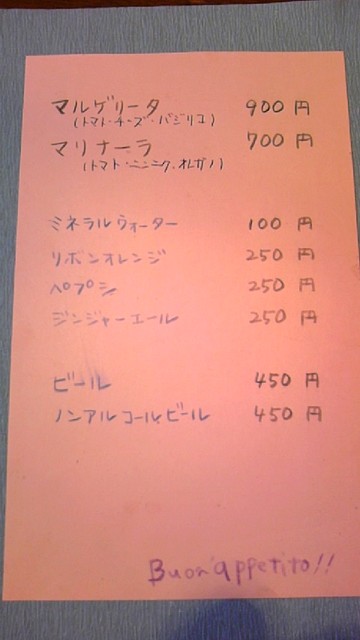 マルゲリータ 900円
(トマト・チーズ・バジリコ)
マリナーラ 700円
(トマト・ニンニク、オレガノ)
ミネラルウォーター 100円
リボンオレンジ 250円
ペプシ 250円
ジンジャーエール 250円
ビール 450円
ノンアルコールビール 450円
Buon appetito!!